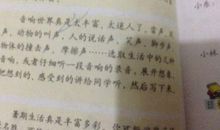 音响世界真是太丰富,太迷人了,雷声、
声、动物的叫声、人的说话声、笑声、脚步声
物体的撞击声、摩擦声……选取生活中的几种
音响,或者仔细听一段音响的录音,展开想象,
把想到的、感受到的讲给同学听,然后写下来。
暑期生活真是丰富多彩,你
小林